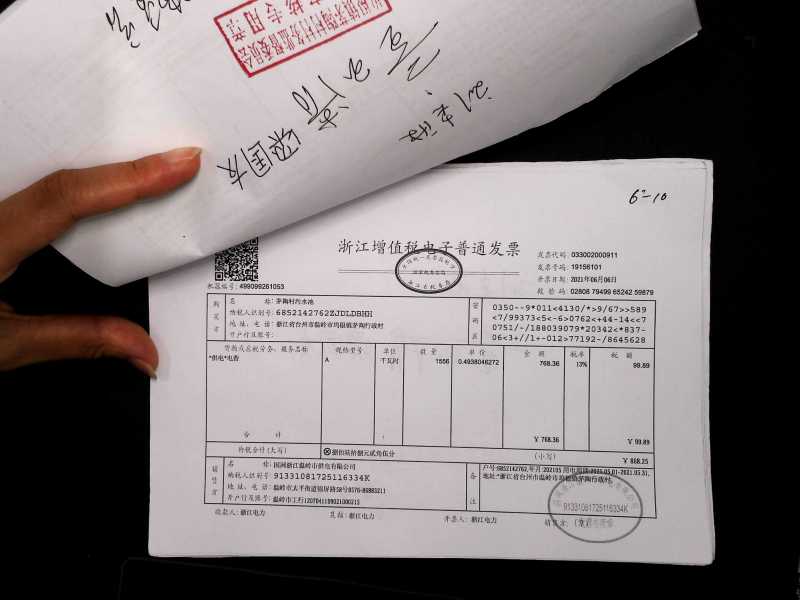 梁国友
6-10
浙江增值税电子普通发票
发票代码: 033002000911
发票号码: 19156101
开票日期: 2021年06月06日
校验码: 02808 79499 65242 59879
机器编号: 499099261053
购买方
名 称: 茅陶村污水池
纳税人识别号: 6852142762ZJDLDBHH
地 址、电 话: 浙江省台州市温岭市坞根镇茅陶行政村
开户行及账号:
密码区
0350--9*011<4130/*>9/67>>589
<7/99373<5<-6>0762<+44-14<<7
0751/-/188039079*20342<*837-
06<3+//1+-012>77192-/8645628
货物或应税劳务、服务名称 规格型号 单位 数量 单价 金额 税率 税额
*供电*电费 A 千瓦时 1556 0.4938046272 768.36 13% 99.89
合 计 ¥ 768.36 ¥ 99.89
价税合计(大写) ⊗捌佰陆拾捌元贰角伍分 (小写) ¥ 868.25
销售方
名 称: 国网浙江温岭市供电有限公司
纳税人识别号: 91331081725116334K
地 址、电 话: 温岭市太平街道锦屏路58号0576-86883211
开户行及账号: 温岭市工行1207041109021000213
备注
户号:6852142762,年月:202105 用电周期:2021.05.01-2021.05.31,
地址:*浙江省台州市温岭市坞根镇茅陶行政村.
收款人: 浙江电力 复核: 浙江电力 开票人: 浙江电力 销售方: (章)
91331081725116334K